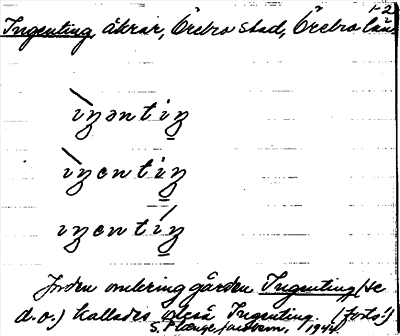 1-2
Ingenting, åkrar, Örebro stad, Örebro län.
ìŋəntiŋ
ìŋentiŋ
iŋentíŋ
Jorden omkring gården Ingenting (se
d.o.) kallades också Ingenting. (forts.!)
S. 1944.